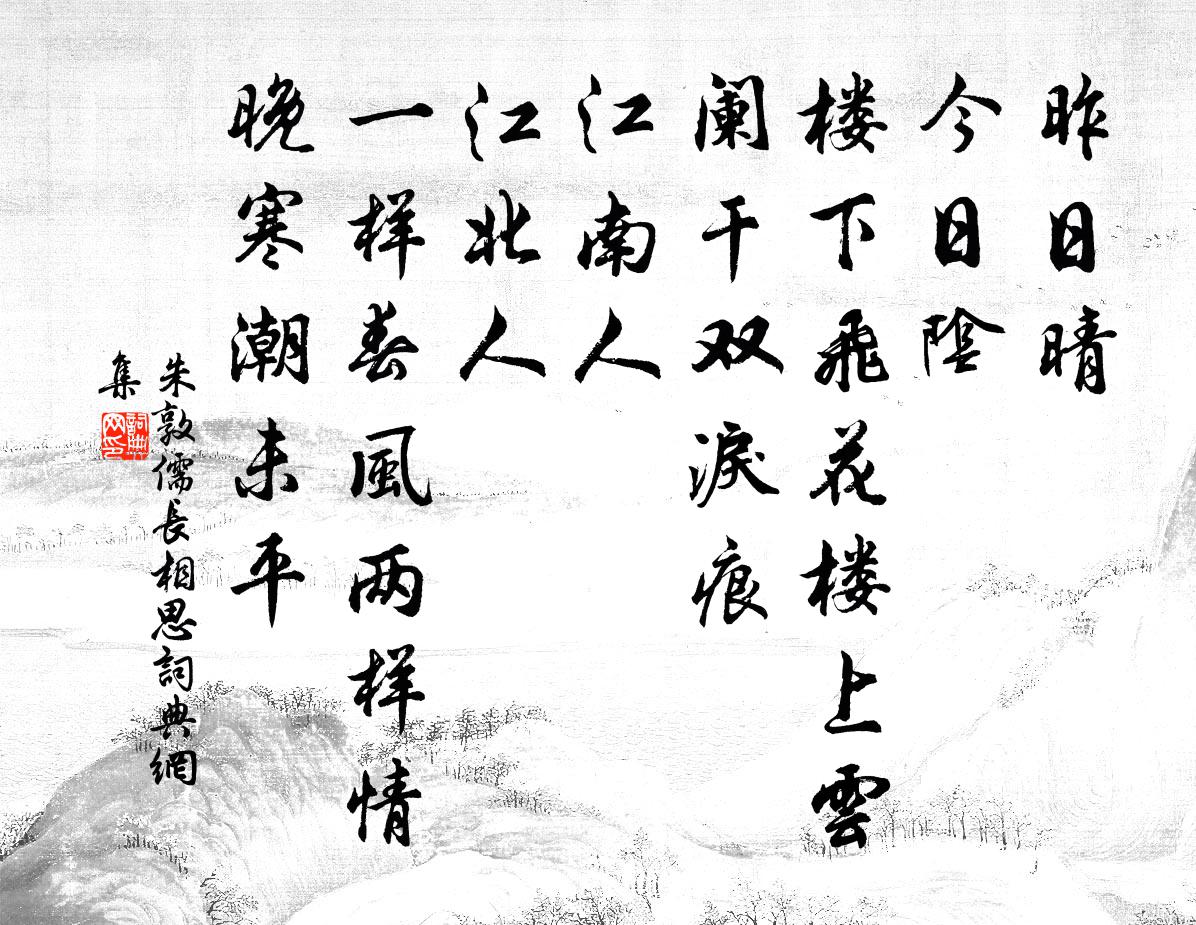 昨日晴
今日陰
楼下飛花楼上雲
阑干双淚痕
江南人
江北人
一样春風两样情
晚寒潮未平
朱敦儒長相思詞典網
集
詞典网印